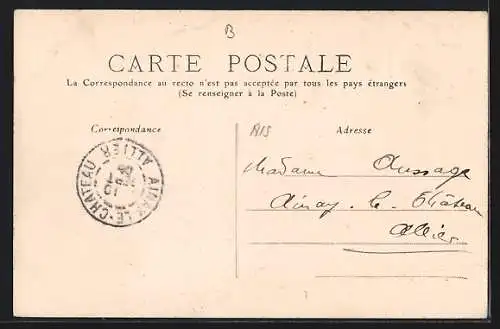 B
CARTE POSTALE
La Correspondance au recto n'est pas acceptée par tous les pays étrangers
(Se renseigner à la Poste)
Correspondance
A15
Adresse
AINAY-LE-CHATEAU
ALLIER
Madame Aussage
Ainay-le-Château
Allier